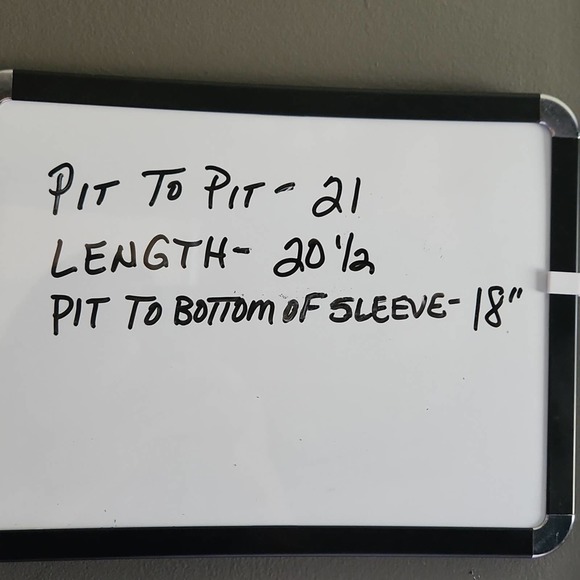 PIT TO PIT - 21
LENGTH - 20 1/2
PIT TO BOTTOM OF SLEEVE - 18"